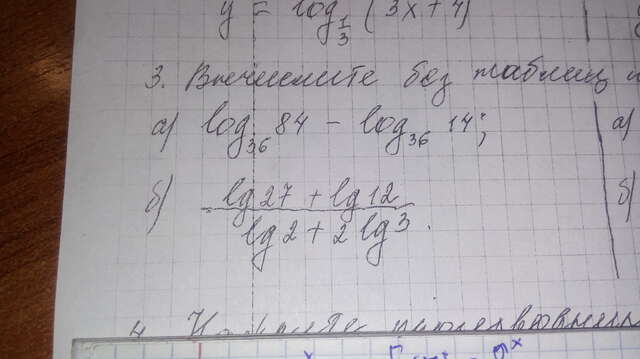 y = log_{1/3} (3x + 4)
3. Вычислите без таблиц и
а) log_{36} 84 - log_{36} 14;
а)
б) \frac{lg 27 + lg 12}{lg 2 + 2 lg 3} =
б)
4.